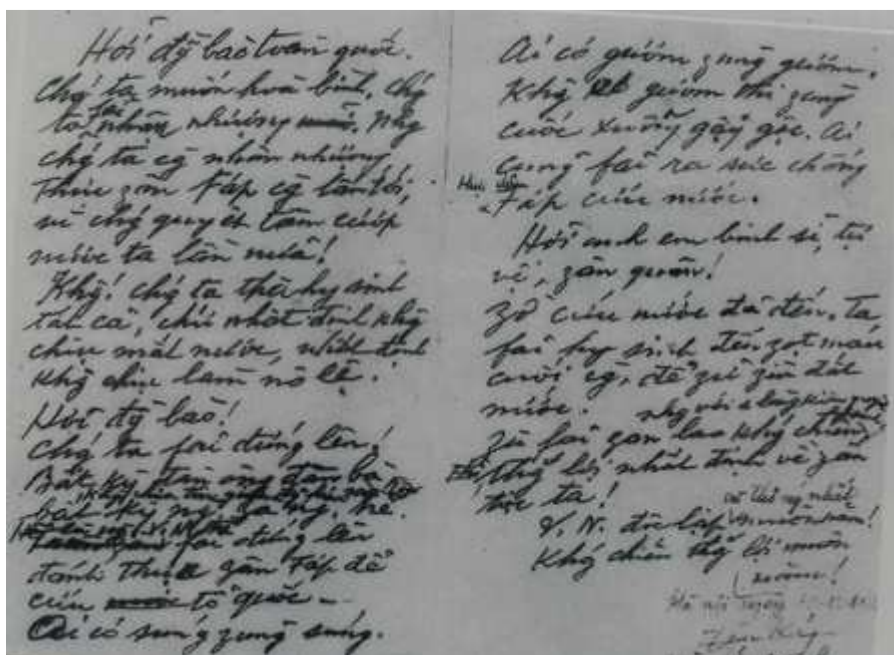 Hỡi đg̃ bào toàn quốc.
Chǵ ta muốn hoà bình, chǵ
ta fải nhân nhượng. Nhg
chǵ ta cg̀ nhân nhượng,
thực zân Fáp cg̀ lấn tới,
vì chǵ quyết tâm cướp
nước ta lần nữa!
Khg! chǵ ta thà hy sinh
tất cả, chứ nhất định khg
chịu mất nước, nhất định
khg chịu làm nô lệ.
Hỡi đg̀ bào!
Chǵ ta fải đứng lên!
Bất kỳ đàn ông đàn bà
bất kỳ ng già ng trẻ.
fải đứng lên
đánh thực zân Fáp để
cứu tổ quốc -
Ai có súng zùng súng.
Ai có gươm zùng gươm.
Khg gươm thì zùng
cuốc xuổng gậy gộc. Ai
cũng fải ra sức chống
thực zân
Fáp cứu nước.
Hỡi anh em binh sĩ, tự
vệ, zân quân!
Zờ cứu nước đã đến. Ta
fải hy sinh đến zọt máu
cuối cg̀, để zữ zìn đất
nước.
Zù fải gian lao khǵ chiến
thắg lợi nhất định về zân
tộc ta!
và thốg nhất
V. N. độc lập muôn năm!
Khǵ chiến thắg lợi muôn
năm!
Hà nội ngày